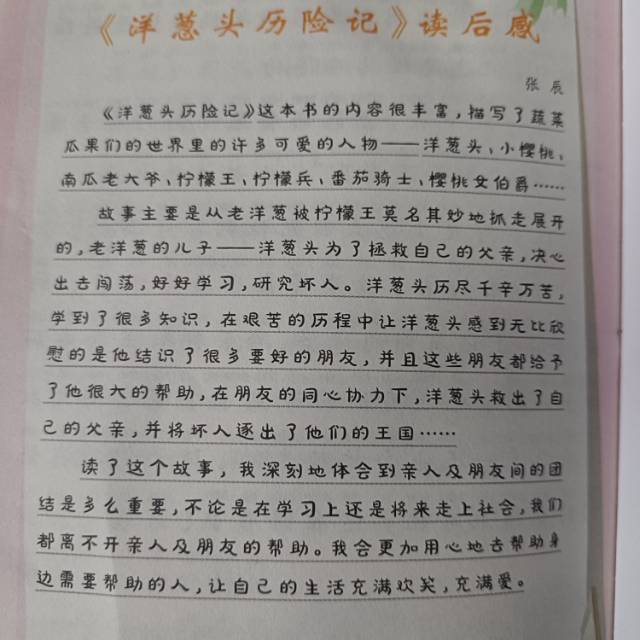 《洋葱头历险记》读后感
张辰
《洋葱头历险记》这本书的内容很丰富，描写了蔬菜
瓜果们的世界里的许多可爱的人物——洋葱头、小樱桃、
南瓜老大爷、柠檬王、柠檬兵、番茄骑士、樱桃女伯爵……
故事主要是从老洋葱被柠檬王莫名其妙地抓走展开
的，老洋葱的儿子——洋葱头为了拯救自己的父亲，决心
出去闯荡，好好学习，研究坏人。洋葱头历尽千辛万苦，
学到了很多知识，在艰苦的历程中让洋葱头感到无比欣
慰的是他结识了很多要好的朋友，并且这些朋友都给予
了他很大的帮助，在朋友的同心协力下，洋葱头救出了自
己的父亲，并将坏人逐出了他们的王国……
读了这个故事，我深刻地体会到亲人及朋友间的团
结是多么重要，不论是在学习上还是将来走上社会，我们
都离不开亲人及朋友的帮助。我会更加用心地去帮助身
边需要帮助的人，让自己的生活充满欢笑，充满爱。